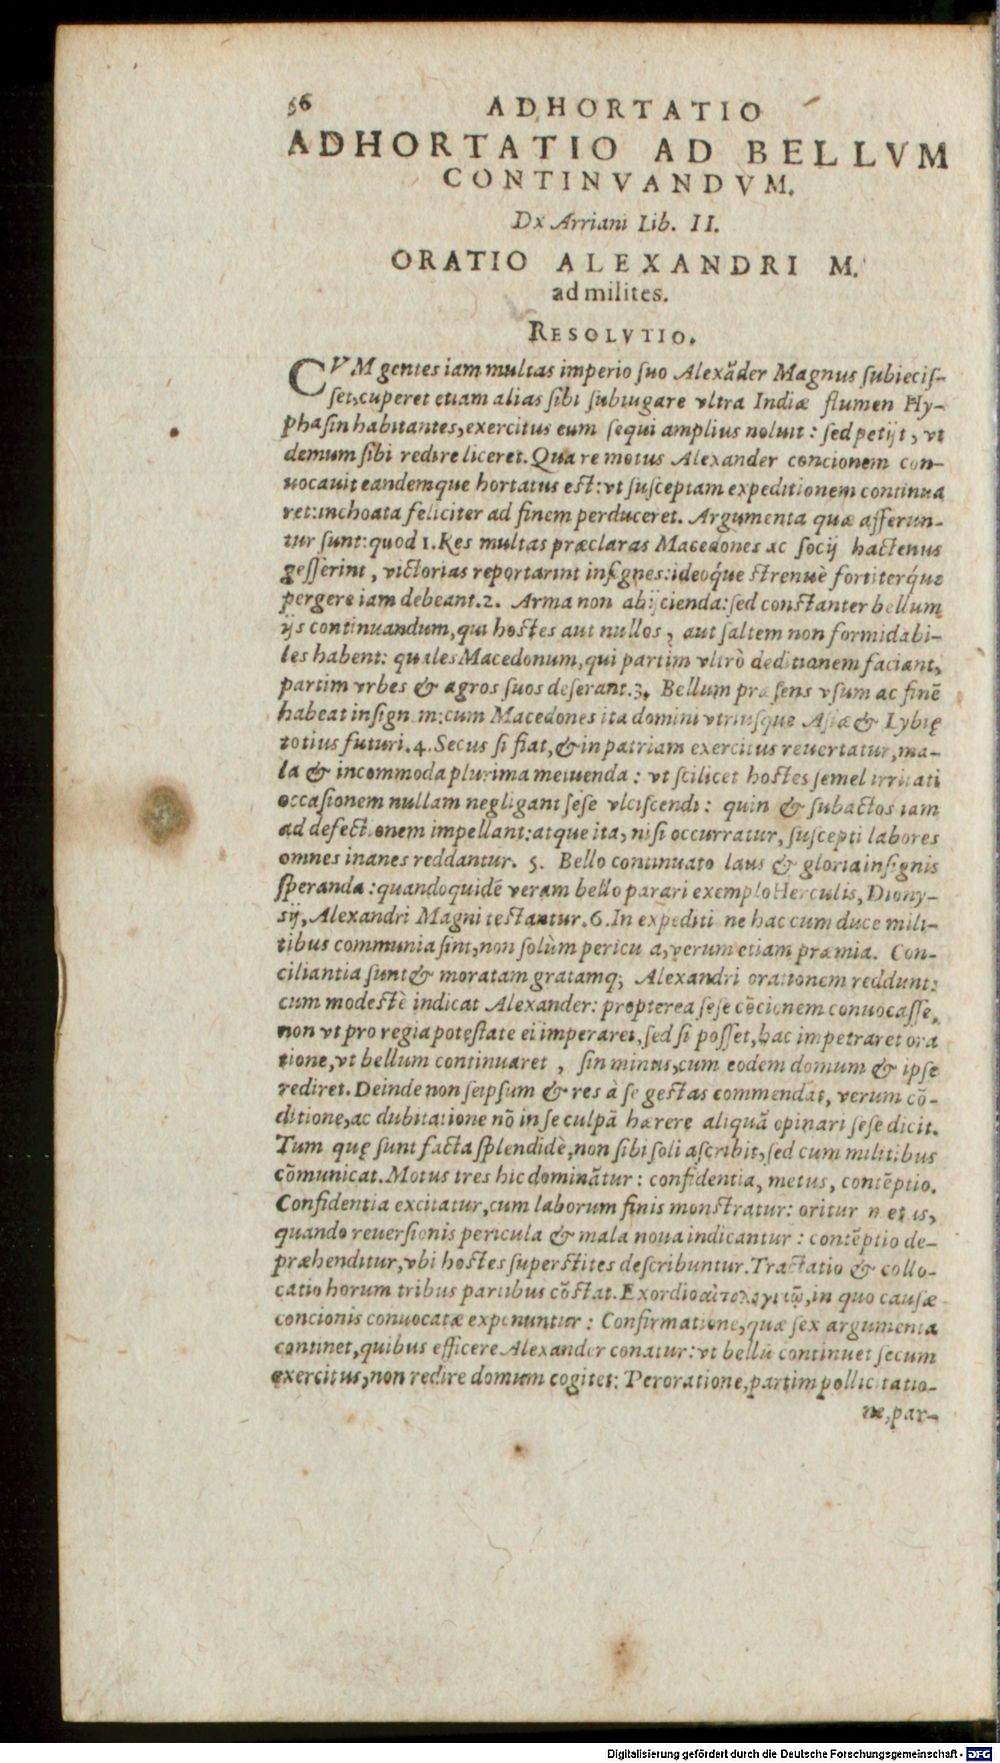 56 ADHORTATIO
ADHORTATIO AD BELLVM
CONTINVANDVM.
Dx Arriani Lib. II.
ORATIO ALEXANDRI M.
ad milites.
RESOLVTIO.
CVM gentes iam multas imperio suo Alexãder Magnus subiecis-
set, cuperet etiam alias sibi subiugare vltra Indiæ flumen Hy-
phasin habitantes, exercitus eum sequi amplius noluit : sed petijt, vt
demum sibi redire liceret. Qua re motus Alexander concionem con-
uocauit eandemque hortatus est: vt susceptam expeditionem continua
ret: inchoata feliciter ad finem perduceret. Argumenta quæ afferun-
tur sunt: quod 1. Res multas præclaras Macedones ac socij hactenus
gesserint, victorias reportarint insignes: ideoq́ue strenuè fortiterq́ue
pergere iam debeant. 2. Arma non abijcienda: sed constanter bellum
ijs continuandum, qui hostes aut nullos, aut saltem non formidabi-
les habent: quales Macedonum, qui partim vltrò deditionem faciant,
partim vrbes & agros suos deserant. 3. Bellum præsens vsum ac finẽ
habeat insignem: cum Macedones ita domini vtriusque Asiæ & Lybię
totius futuri. 4. Secus si fiat, & in patriam exercitus reuertatur, ma-
la & incommoda plurima metuenda : vt scilicet hostes semel irritati
occasionem nullam negligant sese vlciscendi : quin & subactos iam
ad defectionem impellant: atque ita, nisi occurratur, suscepti labores
omnes inanes reddantur. 5. Bello continuato laus & gloria insignis
speranda : quandoquidẽ veram bello parari exemplo Herculis, Diony-
sij, Alexandri Magni testantur. 6. In expeditione hac cum duce mili-
tibus communia sint, non solùm pericula, verum etiam præmia. Con-
ciliantia sunt & moratam gratamq; Alexandri orationem reddunt:
cum modestè indicat Alexander: propterea sese cõcionem conuocasse,
non vt pro regia potestate ei imperaret, sed si posset, hac impetraret ora
tione, vt bellum continuaret , sin minus, cum eodem domum & ipse
rediret. Deinde non seipsum & res à se gestas commendat, verum cõ-
ditione, ac dubitatione nõ in se culpã hærere aliquã opinari sese dicit.
Tum quę sunt facta splendidè, non sibi soli ascribit, sed cum militibus
cõmunicat. Motus tres hic dominãtur : confidentia, metus, contẽptio.
Confidentia excitatur, cum laborum finis monstratur: oritur metus,
quando reuersionis pericula & mala noua indicantur : contẽptio de-
præhenditur, vbi hostes superstites describuntur. Tractatio & collo-
catio horum tribus partibus cõstat. Exordio αἰτολογικῷ, in quo causæ
concionis conuocatæ exponuntur : Confirmatione, quæ sex argumenta
continet, quibus efficere Alexander conatur: vt bellũ continuet secum
exercitus, non redire domum cogitet: Peroratione, partim pollicitatio-
ne, par-
Digitalisierung gefördert durch die Deutsche Forschungsgemeinschaft - DFG